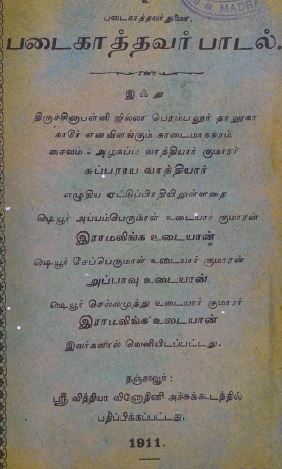 உ
படைகாத்தவர் துணை.
M. MADRA
படைகாத்தவர் பாடல்.
இஃது
திருச்சினாபள்ளி ஜில்லா பெரம்பலூர் தாலூகா
காரை எனவிளங்கும் காடைமாநகரம்
சைவம் - அழகப்ப வாத்தியார் குமாரர்
சுப்பராய வாத்தியார்
எழுதிய ஏட்டுப்பிரதியிலுள்ளதை
௸யூர் அய்யம்பெருமாள் உடையார் குமாரன்
இராமலிங்க உடையான்
௸யூர் சேப்பெருமாள் உடையார் குமாரன்
அப்பாவு உடையான்
௸யூர் செல்லமுத்து உடையார் குமாரர்
இராமலிங்க உடையான்
இவர்களால் வெளியிடப்பட்டது.
தஞ்சாவூர் :
ஸ்ரீ வித்தியா விநோதினி அச்சுக்கூடத்தில்
பதிப்பிக்கப்பட்டது.
1911.